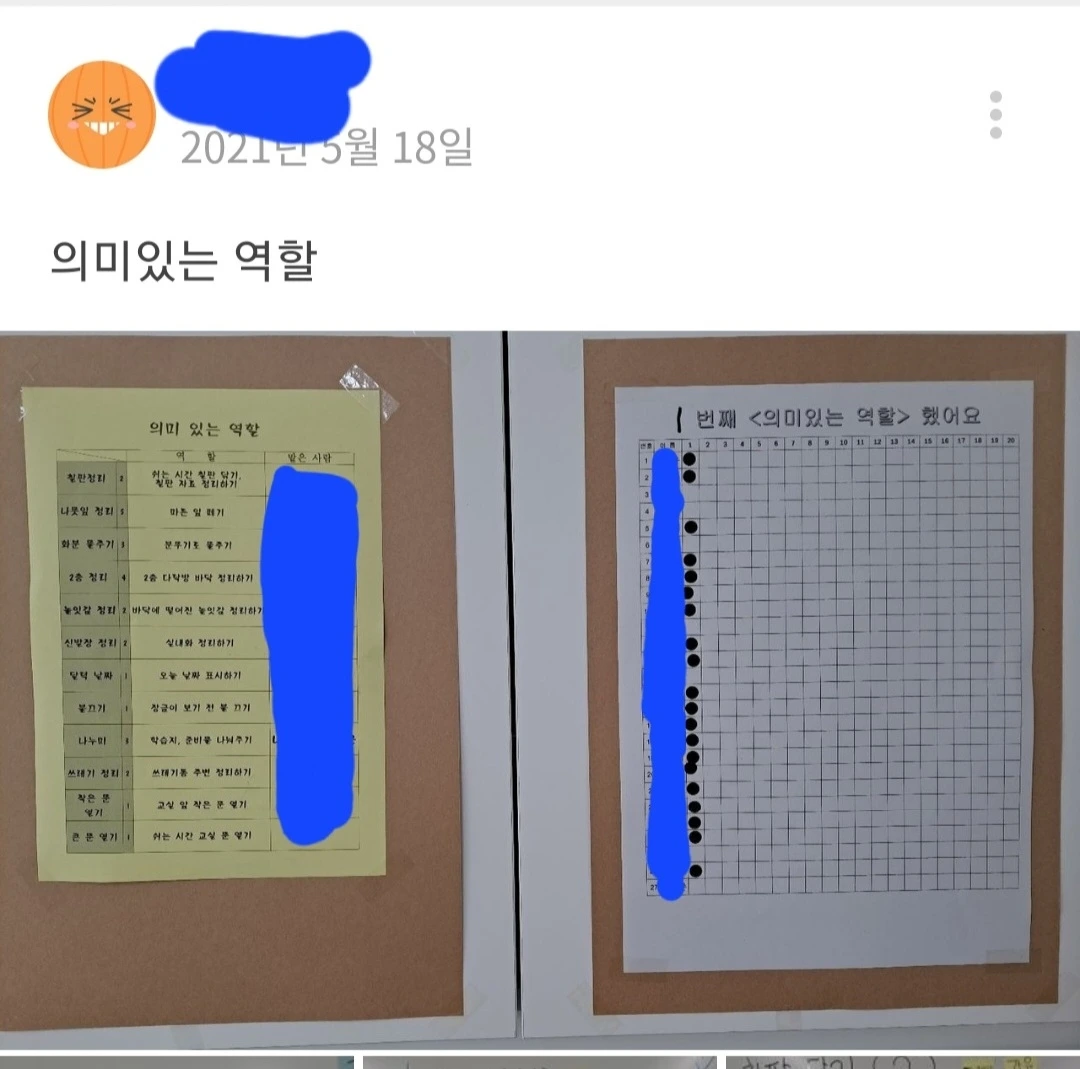 2021년 5월 18일
의미있는 역할
의미 있는 역할
역 할 맡은 사람
칠판정리 2 쉬는 시간 칠판 닦기, 칠판 자료 정리하기
나뭇잎 정리 3 마른 잎 떼기
화분 물주기 3 분무기로 물주기
2층 정리 4 2층 다락방 바닥 정리하기
놀잇감 정리 2 바닥에 떨어진 놀잇감 정리하기
신발장 정리 2 실내화 정리하기
달력 날짜 1 오늘 날짜 표시하기
불끄기 1 장금이 보기 전 불 끄기
나누미 학습지, 준비물 나눠주기
쓰레기 정리 2 쓰레기통 주변 정리하기
작은 문 열기 1 교실 앞 작은 문 열기
큰 문 열기 1 쉬는 시간 교실 문 열기
1 번째 <의미있는 역할> 했어요
번호 1 2 3 4 5 6 7 8 9 10 11 12 13 14 15 16 17 18 19 20
1
2
3
4
5
6
7
8
27